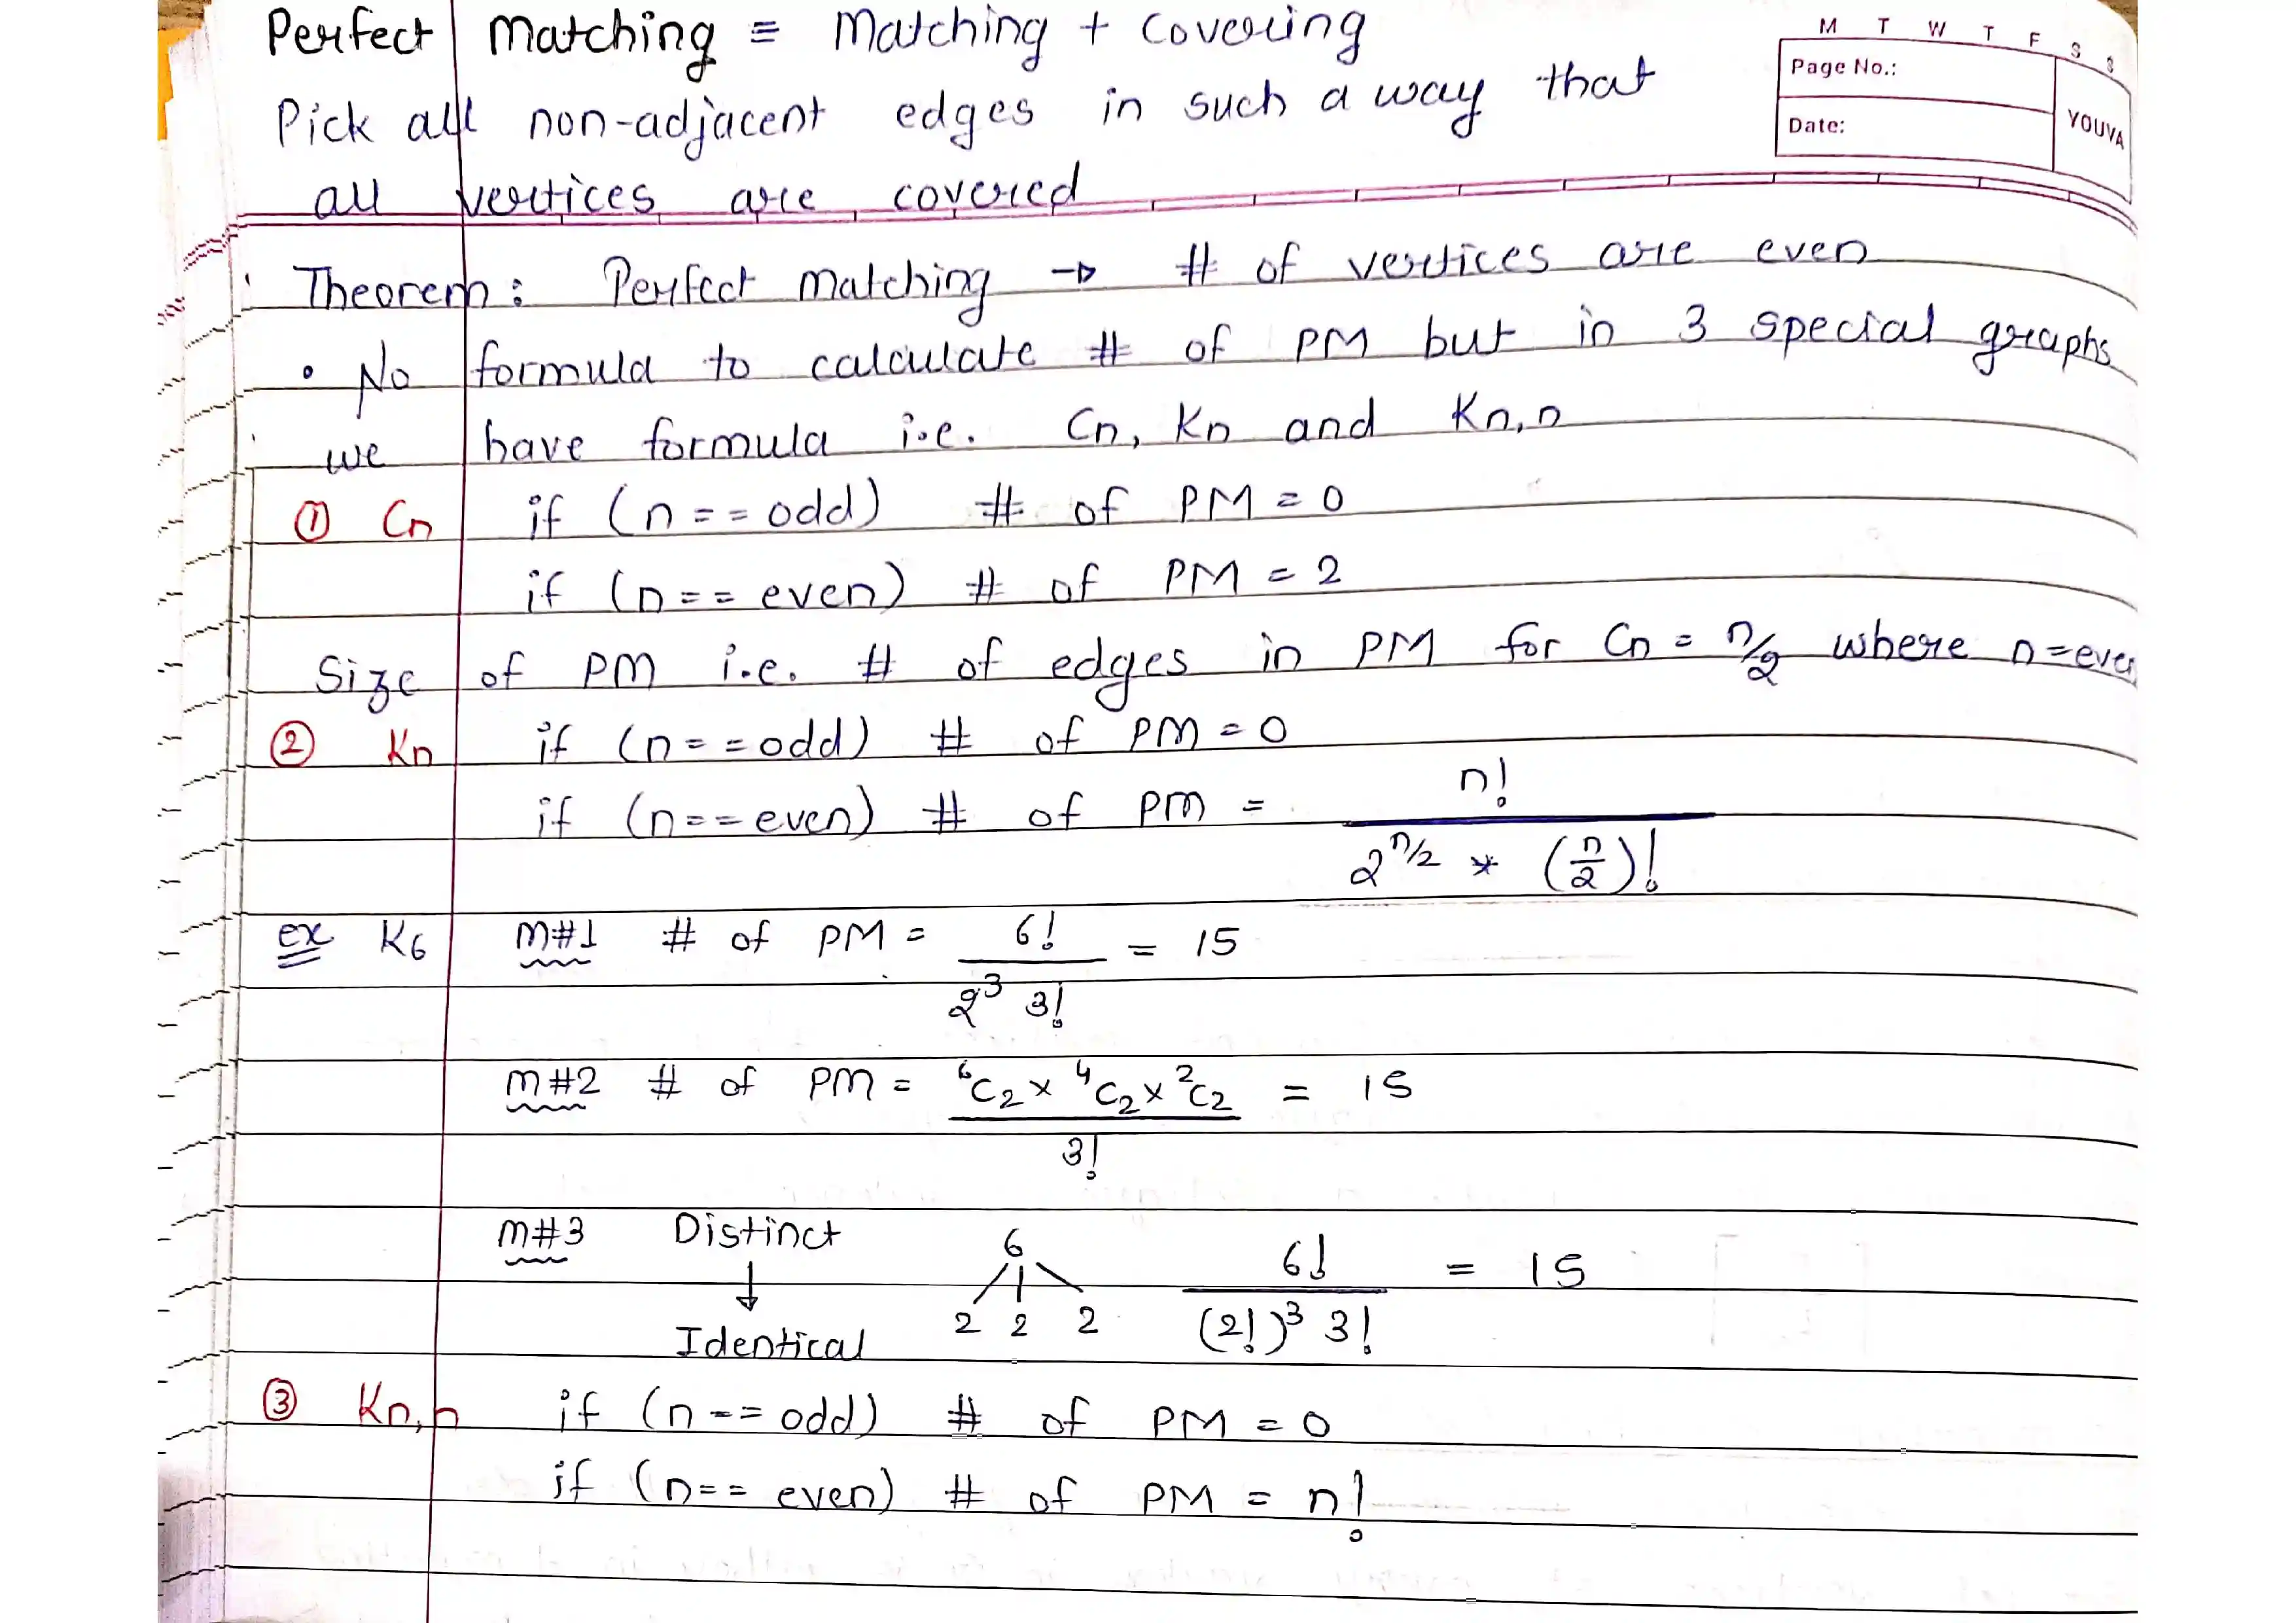 Perfect Matching ≡ Matching + Covering
M T W T F S S
Page No.:
Date:
YOUVA
Pick all non-adjacent edges in such a way that
all vertices are covered
Theorem: Perfect Matching → # of vertices are even
• No formula to calculate # of PM but in 3 special graphs
we have formula i.e. Cn, Kn and Kn,n
① Cn if (n == odd) # of PM = 0
if (n == even) # of PM = 2
Size of PM i.e. # of edges in PM for Cn = n/2 where n=even
② Kn if (n == odd) # of PM = 0
if (n == even) # of PM = n! / 2^(n/2) * (n/2)!
ex K6 M#1 # of PM = 6! / 2³ 3! = 15
M#2 # of PM = ⁶C₂ x ⁴C₂ x ²C₂ / 3! = 15
M#3 Distinct ↓ Identical 6 2 2 2 6! / (2!)³ 3! = 15
③ Kn,n if (n == odd) # of PM = 0
if (n == even) # of PM = n!